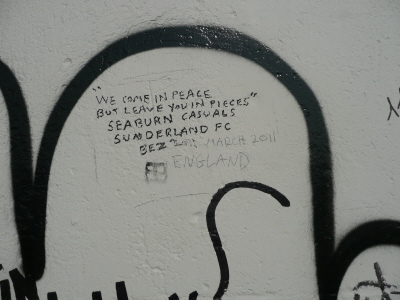 "WE COME IN PEACE
BUT LEAVE YOU IN PIECES"
SEABURN CASUALS
SUNDERLAND FC
BEZ MARCH 2011
ENGLAND